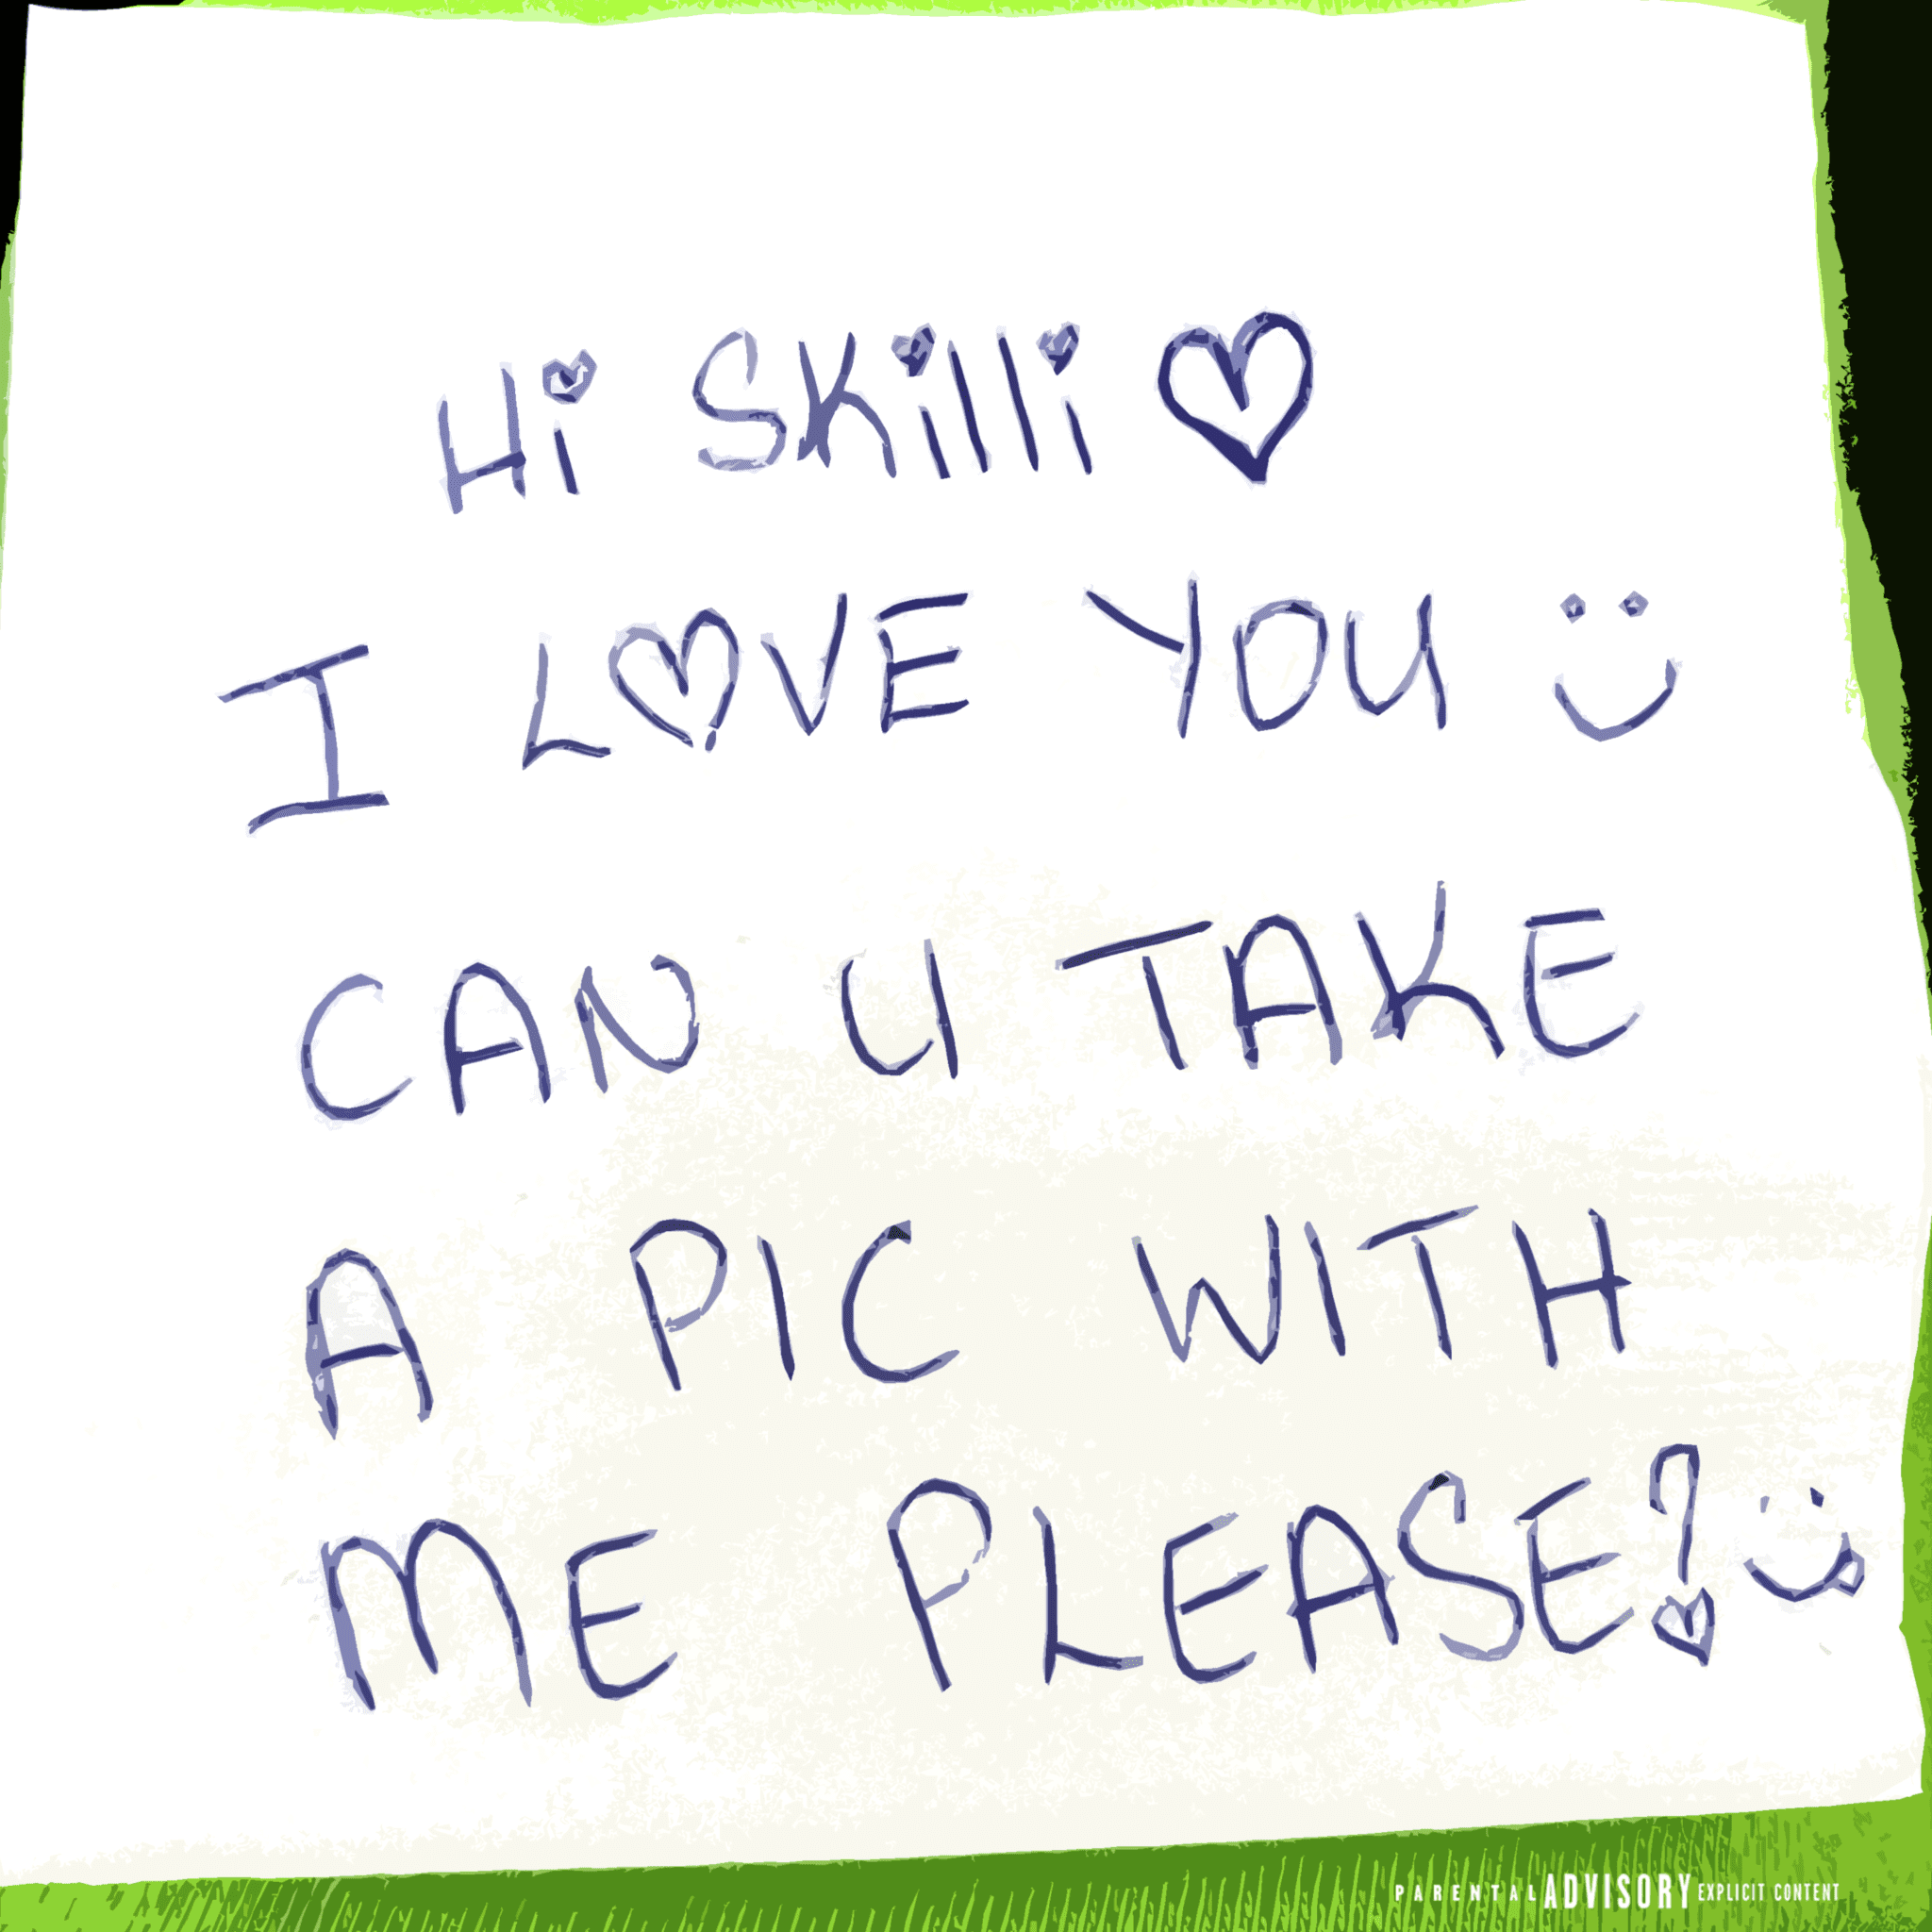 Hi Skilli ♡
I LOVE YOU :)
CAN U TAKE
A PIC WITH
ME PLEASE? :)
PARENTAL ADVISORY EXPLICIT CONTENT